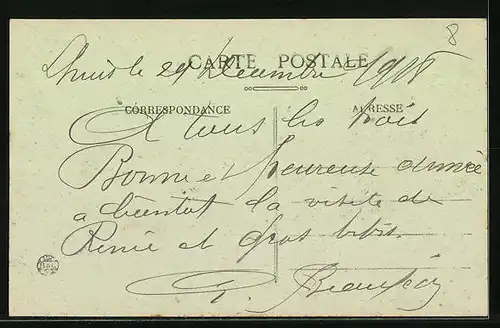 8
CARTE POSTALE
le 29 Décembre 1918
CORRESPONDANCE
ADRESSE
A tous les trois
Bonne et heureuse année
a bientot la visite de
Renée et gros bibis.